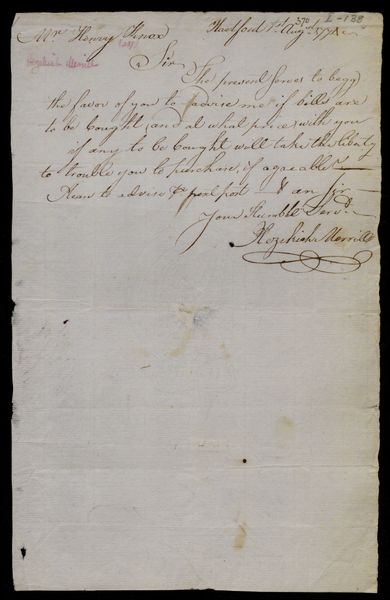 370 L-138
Mr Henry Knox Hartford 1st Augst 1774
Hezekiah Merrill
Sir
The present serves to begg
the favor of you to advise me if bills are
to be bought (and at what price) with you
if any to be bought will take the liberty
to trouble you to purchase, if agreable
Please to advise pr next post & am Sir
Your Humble Servt
Hezekiah Merrill